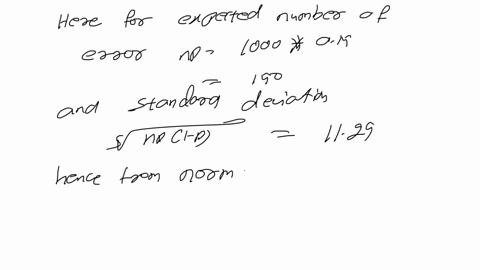 Here for expected number of
error np = 1000 * 0.19
= 190
and standard deviation
√np(1-p) = 11.29
hence from norm